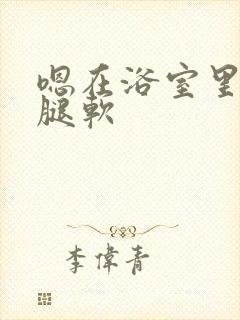 嗯在浴室里
腿軟
李偉青